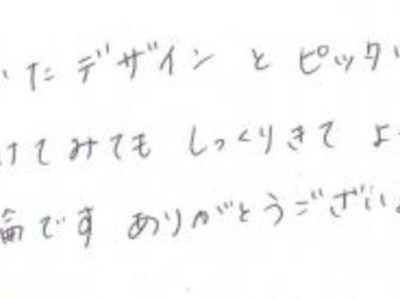 いた デザイン と ピッタ
けてみても しっくりきて よ
輪です ありがとうござい